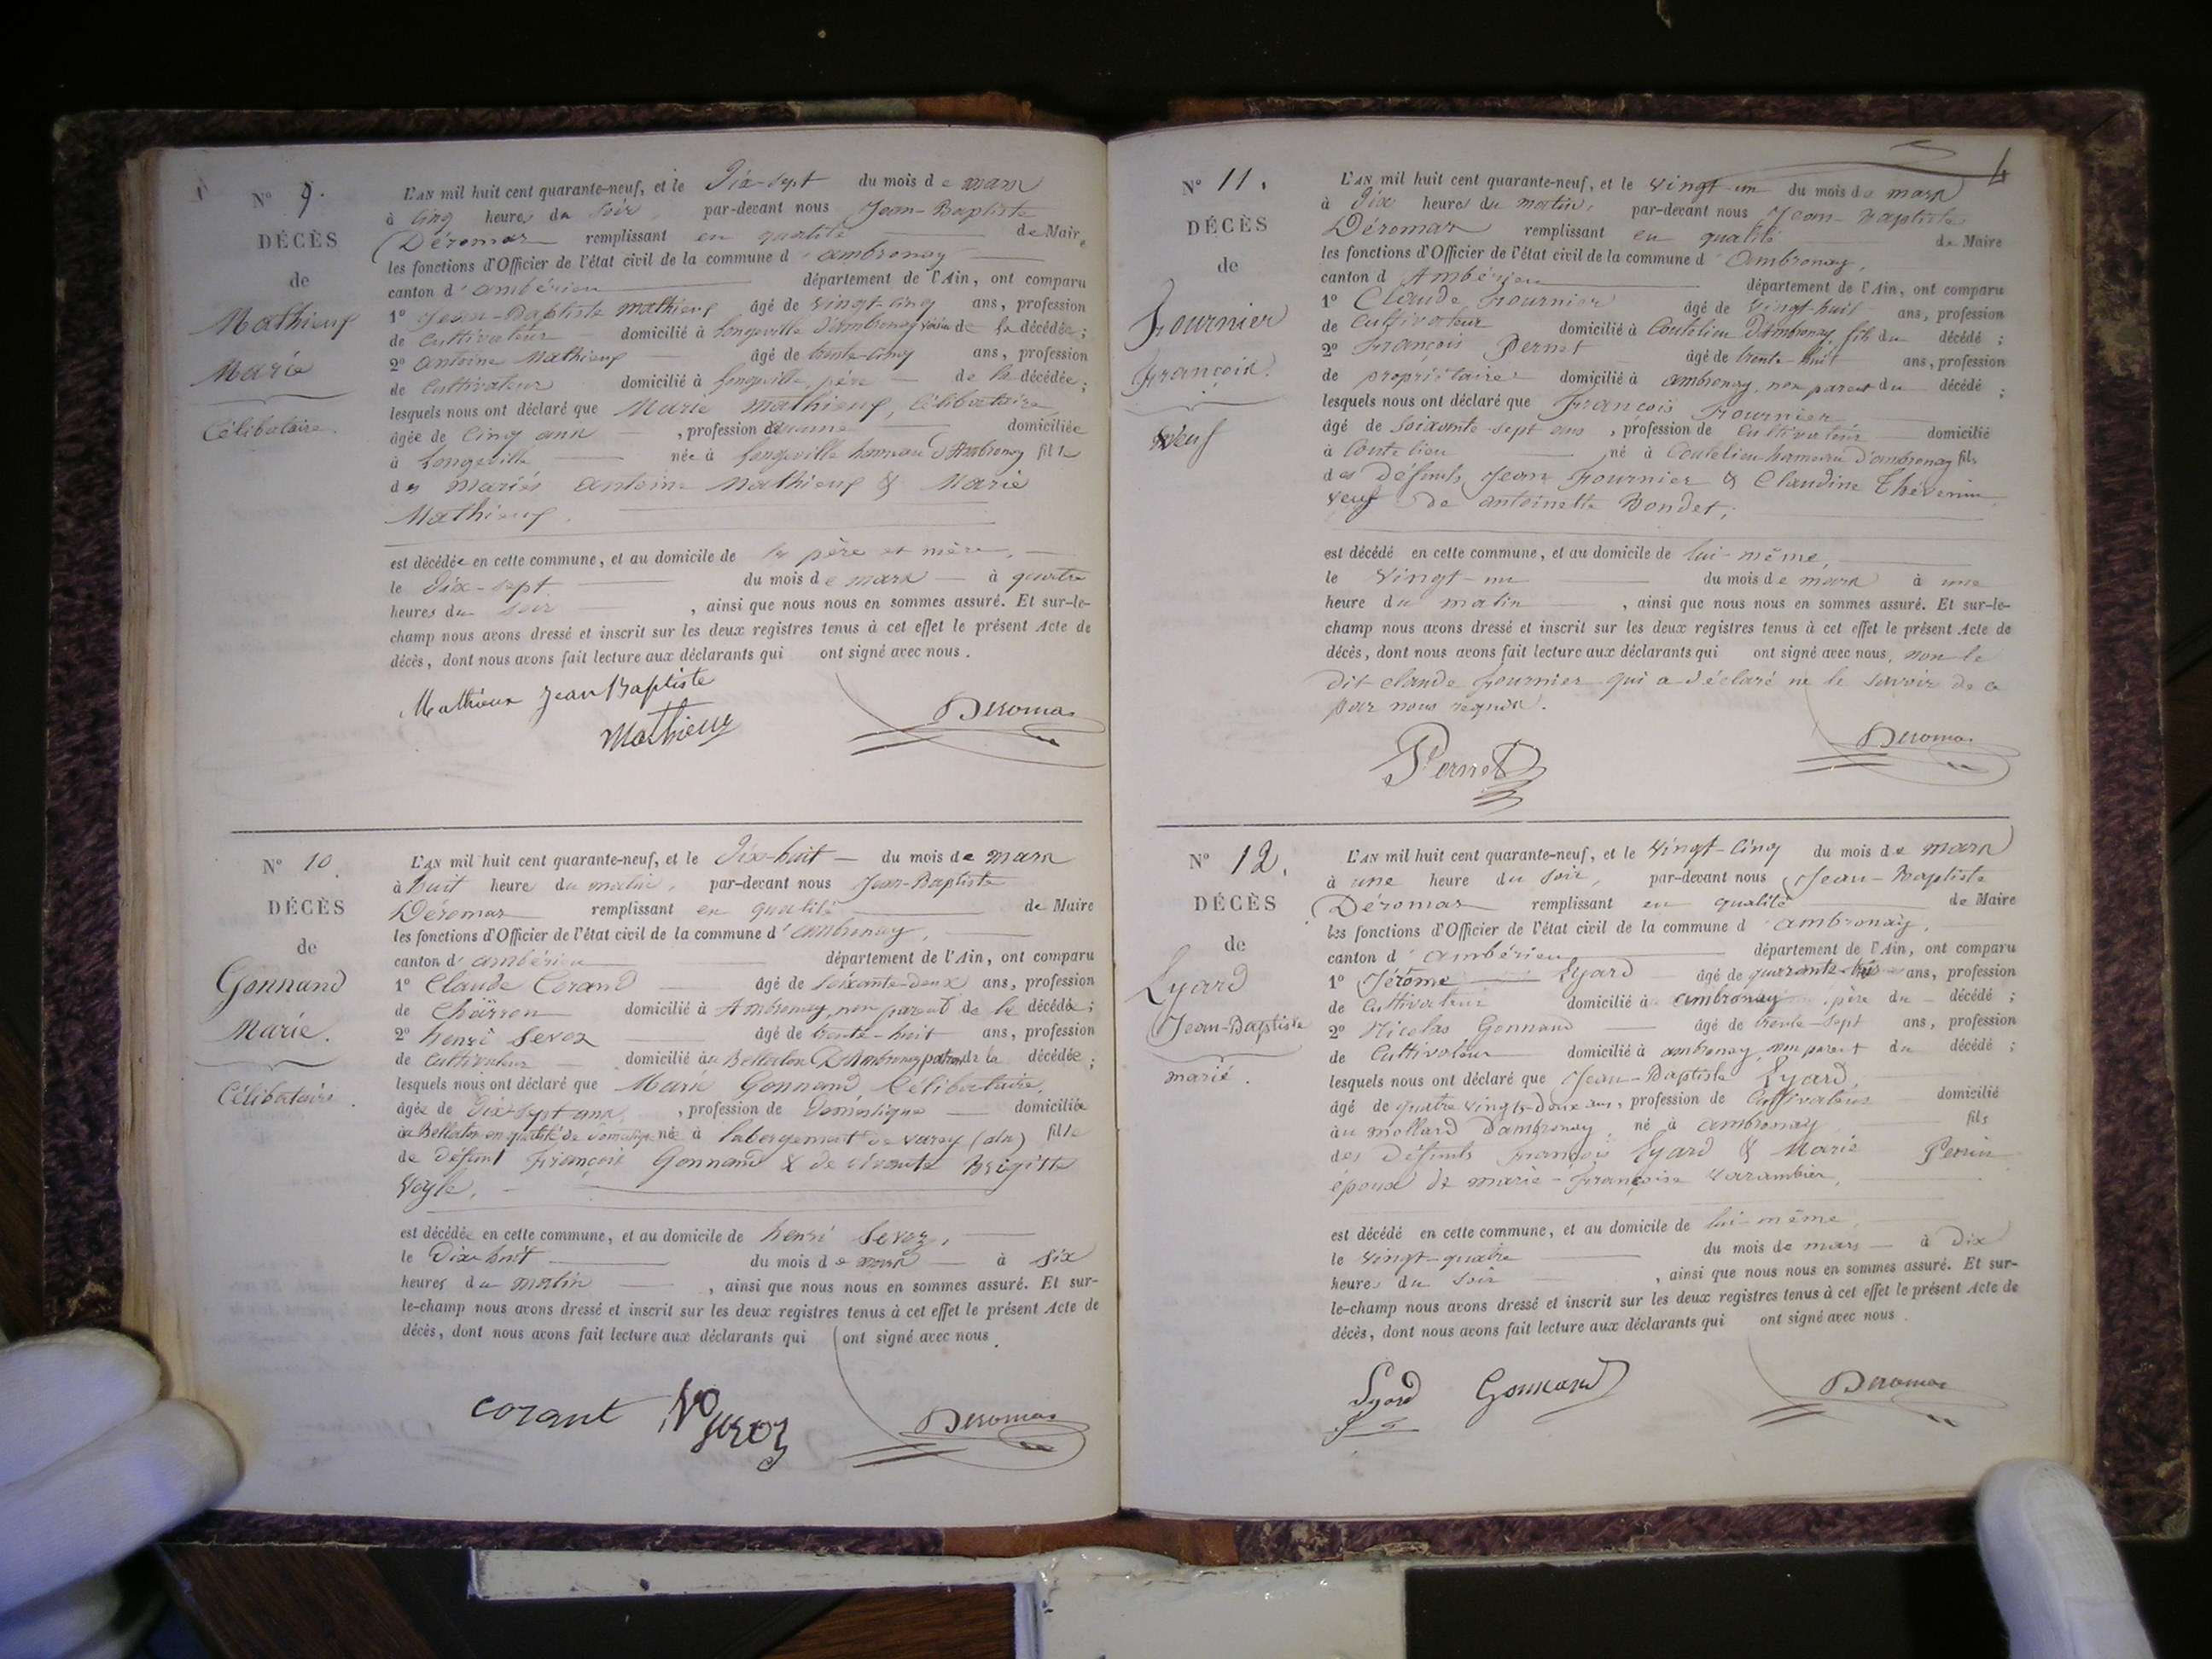 N° 9.
DÉCÈS
de
Mathieux
Marie
Célibataire.
L'AN mil huit cent quarante-neuf, et le Dix-sept du mois de mars
à cinq heures du soir par-devant nous Jean-Baptiste
Déromas remplissant en qualité de Maire
les fonctions d'Officier de l'état civil de la commune d'ambronay
canton d'ambérieu département de l'Ain, ont comparu
1° Jean-Baptiste Mathieux âgé de vingt-cinq ans, profession
de cultivateur domicilié à Longeville d'Ambronay voisin de la décédée;
2° Antoine Mathieux âgé de trente-cinq ans, profession
de cultivateur domicilié à Longeville, père de la décédée;
lesquels nous ont déclaré que Marie Mathieux, célibataire
âgée de cinq ans, profession domiciliée
à Longeville née à Longeville hameau d'Ambronay fille
des mariés antoine Mathieux & Marie
Mathieux.
est décédée en cette commune, et au domicile de père et mère,
le Dix-sept du mois de mars à quatre
heures du soir, ainsi que nous nous en sommes assuré. Et sur-le-
champ nous avons dressé et inscrit sur les deux registres tenus à cet effet le présent Acte de
décès, dont nous avons fait lecture aux déclarants qui ont signé avec nous.
Mathieux Jean Baptiste
Mathieux
Deromas
N° 10.
DÉCÈS
de
Gonnand
Marie.
Célibataire.
L'AN mil huit cent quarante-neuf, et le Dix-huit du mois de mars
à huit heure du matin, par-devant nous Jean-Baptiste
Déromas remplissant en qualité de Maire
les fonctions d'Officier de l'état civil de la commune d'ambronay,
canton d'ambérieu département de l'Ain, ont comparu
1° Claude Corand âgé de soixante-deux ans, profession
de Charron domicilié à Ambronay, non parent de la décédée;
2° henri Sevoz âgé de trente-huit ans, profession
de cultivateur domicilié au Bellaton D'Ambronay patron de la décédée;
lesquels nous ont déclaré que Marie Gonnand Célibataire,
âgée de Dix-sept ans, profession de Domestique domiciliée
au Bellaton en qualité de domestique née à labergement de varey (ain) fille
de défunt François Gonnand & de vivante Brigitte
Voyle,
est décédée en cette commune, et au domicile de henri Sevoz,
le Dix-huit du mois de mars à six
heures du matin, ainsi que nous nous en sommes assuré. Et sur-
le-champ nous avons dressé et inscrit sur les deux registres tenus à cet effet le présent Acte de
décès, dont nous avons fait lecture aux déclarants qui ont signé avec nous.
corant
Deromas
4
N° 11.
DÉCÈS
de
Fournier
François.
Veuf
L'AN mil huit cent quarante-neuf, et le vingt-un du mois de mars
à Dix heures du matin, par-devant nous Jean-Baptiste
Déromas remplissant en qualité de Maire
les fonctions d'Officier de l'état civil de la commune d'Ambronay,
canton d'Ambérieu département de l'Ain, ont comparu
1° Claude Fournier âgé de vingt-huit ans, profession
de cultivateur domicilié à Coutelieu D'Ambronay, fils du décédé;
2° François Pernet âgé de trente-huit ans, profession
de propriétaire domicilié à ambronay, non parent du décédé;
lesquels nous ont déclaré que François Fournier
âgé de soixante-sept ans, profession de cultivateur domicilié
à Coutelieu né à Coutelieu hameau d'ambronay fils
des Défunts Jean Fournier & Claudine Thévenin
veuf de antoinette Bondet;
est décédé en cette commune, et au domicile de lui-même,
le vingt-un du mois de mars à une
heure du matin, ainsi que nous nous en sommes assuré. Et sur-le-
champ nous avons dressé et inscrit sur les deux registres tenus à cet effet le présent Acte de
décès, dont nous avons fait lecture aux déclarants qui ont signé avec nous, non le
dit claude Fournier qui a déclaré ne le savoir de ce
par nous requis.
Pernet
Deromas
N° 12.
DÉCÈS
de
Lyard
Jean-Baptiste
marié.
L'AN mil huit cent quarante-neuf, et le vingt-cinq du mois de mars
à une heure du soir, par-devant nous Jean-Baptiste
Déromas remplissant en qualité de Maire
les fonctions d'Officier de l'état civil de la commune d'ambronay,
canton d'ambérieu département de l'Ain, ont comparu
1° Jérôme Lyard âgé de quarante-trois ans, profession
de cultivateur domicilié à ambronay père du décédé;
2° Nicolas Gonnand âgé de trente-sept ans, profession
de Cultivateur domicilié à ambronay, non parent du décédé;
lesquels nous ont déclaré que Jean-Baptiste Lyard,
âgé de quatre vingts-deux ans, profession de cultivateur domicilié
au mollard d'ambronay, né à ambronay fils
des Défunts François Lyard & Marie Perrin
époux de marie-Françoise Varambier,
est décédé en cette commune, et au domicile de lui-même
le vingt-quatre du mois de mars à dix
heures du soir, ainsi que nous nous en sommes assuré. Et sur-
le-champ nous avons dressé et inscrit sur les deux registres tenus à cet effet le présent Acte de
décès, dont nous avons fait lecture aux déclarants qui ont signé avec nous.
Lyard Gonnand
Deromas